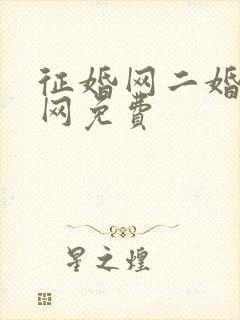 征婚网二婚
网免费
星之煌